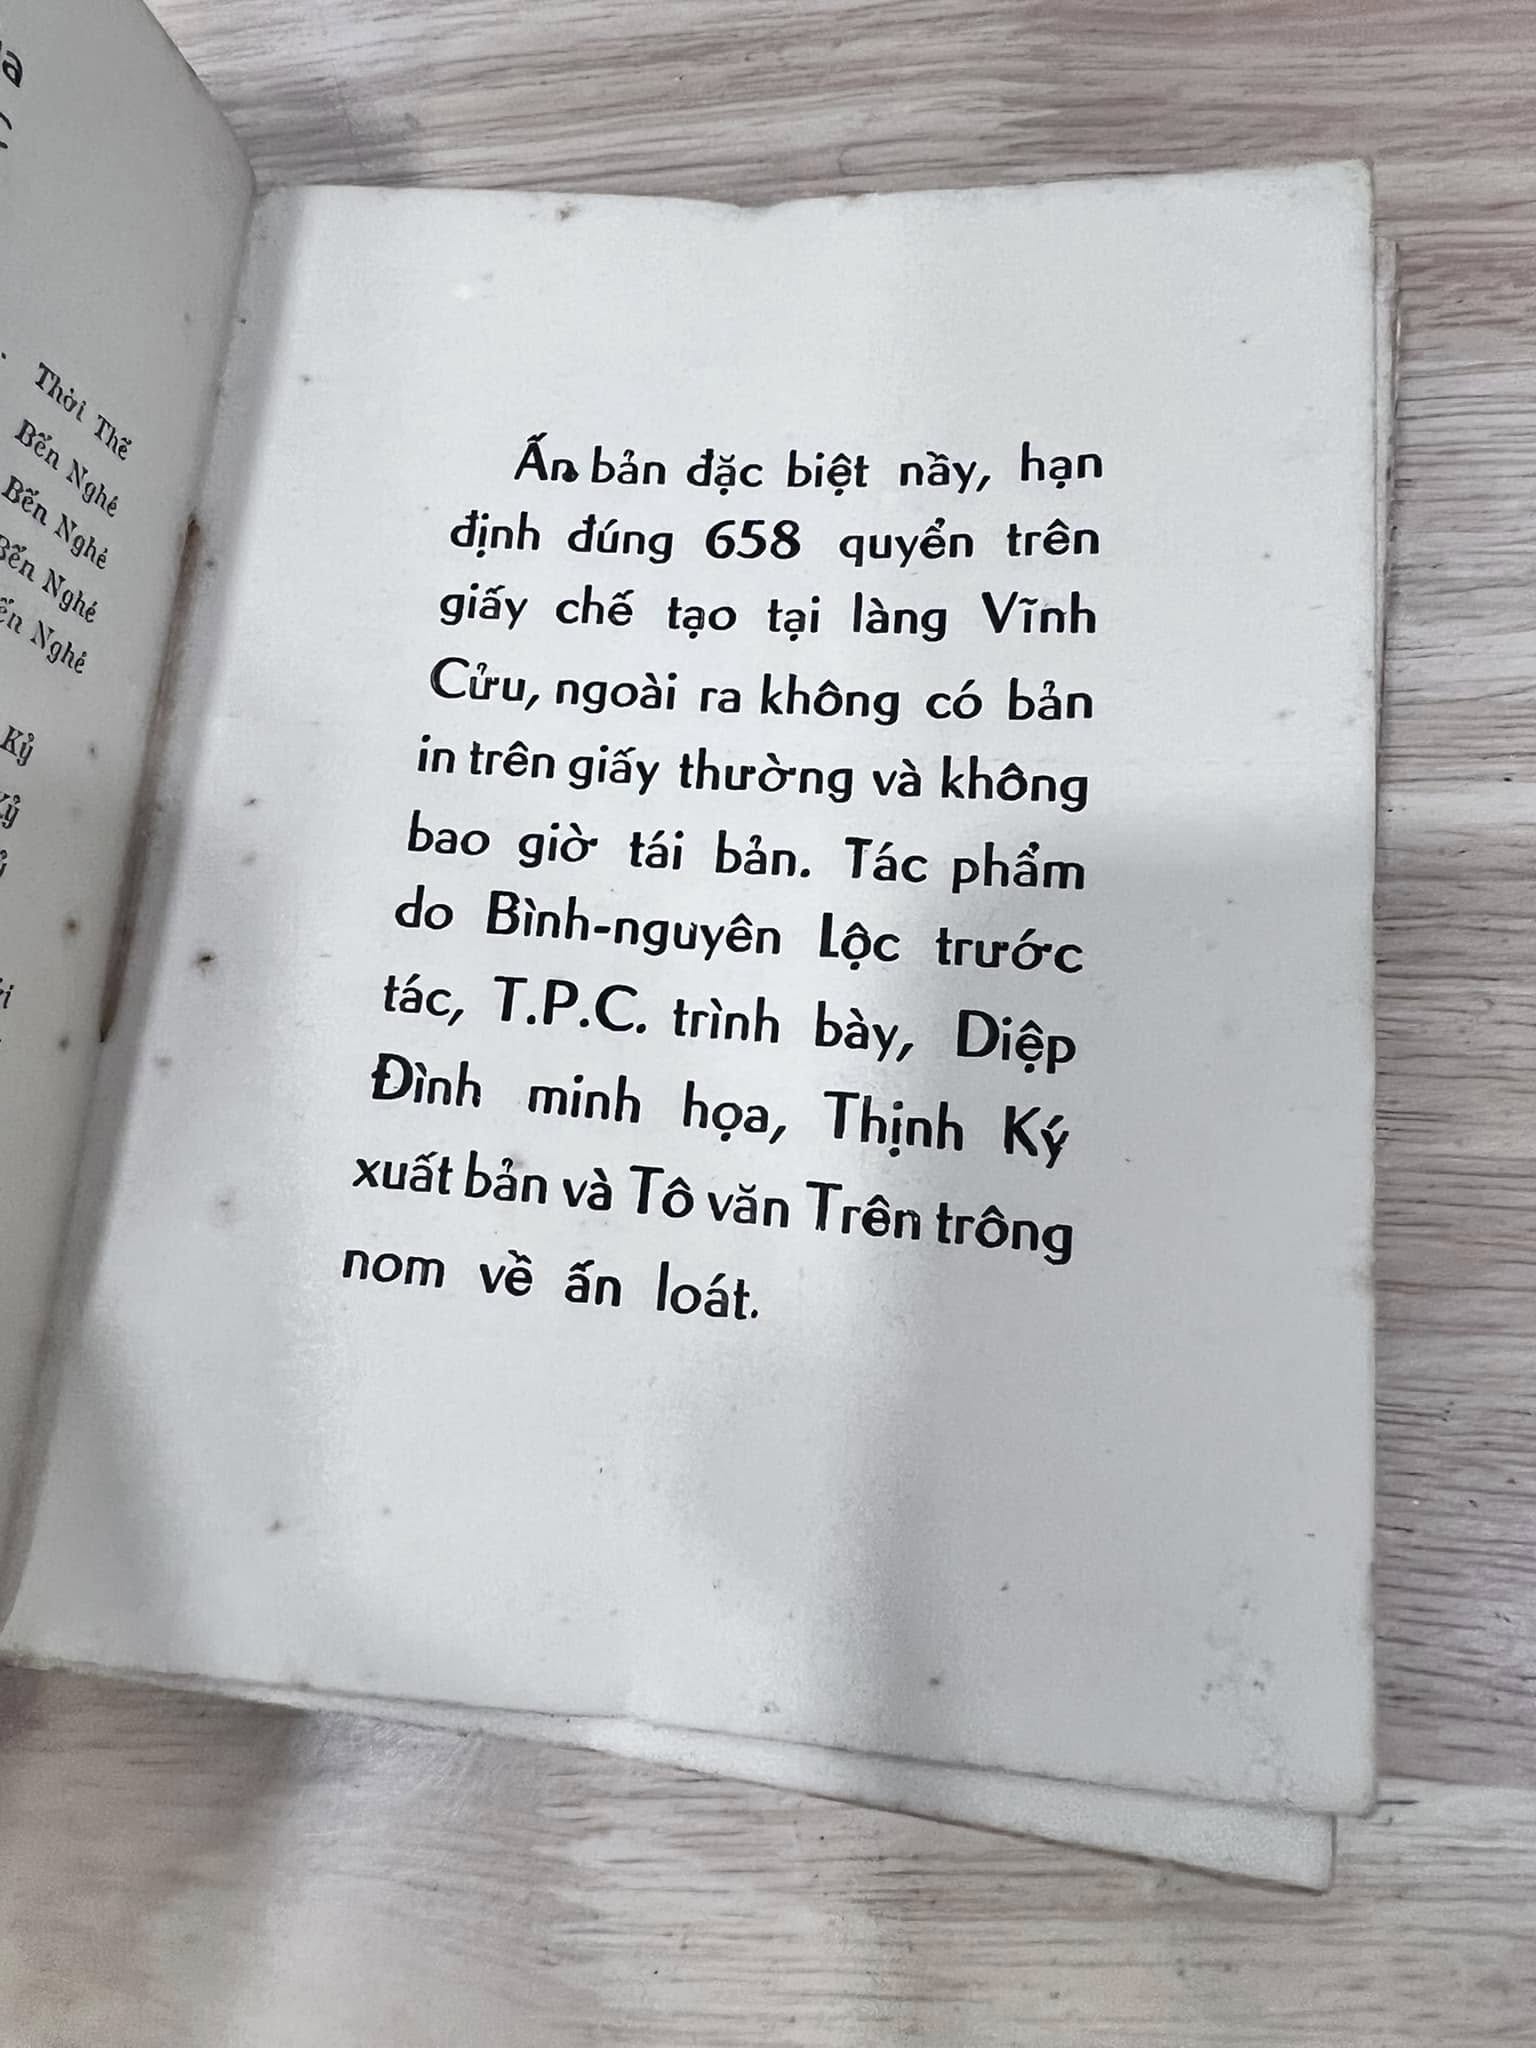 Thời Thế
Bến Nghé
Bến Nghé
Bến Nghé
Nghé
Kỷ
Ấn bản đặc biệt nầy, hạn
định đúng 658 quyển trên
giấy chế tạo tại làng Vĩnh
Cửu, ngoài ra không có bản
in trên giấy thường và không
bao giờ tái bản. Tác phẩm
do Bình-nguyên Lộc trước
tác, T.P.C. trình bày, Diệp
Đình minh họa, Thịnh Ký
xuất bản và Tô văn Trên trông
nom về ấn loát.